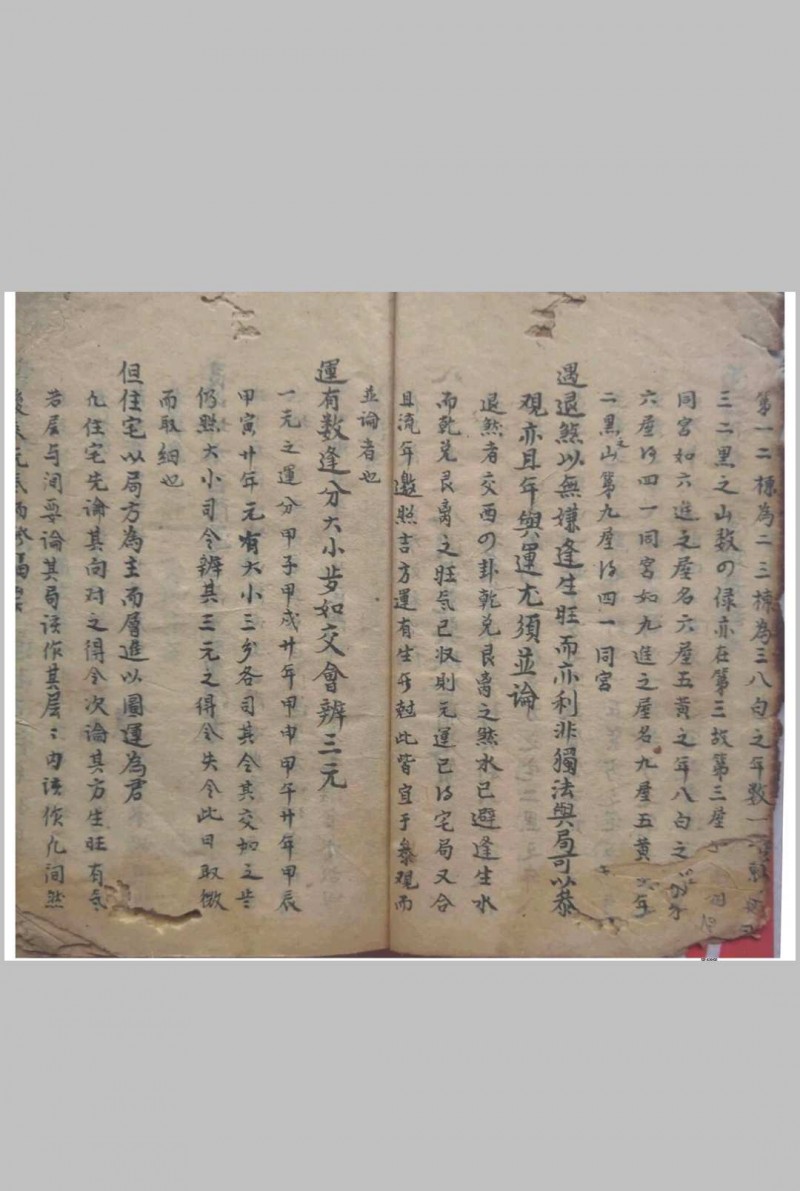 第一二棟為二三棟為三八白之年数一
三二黒之山数の绿亦在第三故第三屋
同宮如六進之屋名六屋五黄之年八白之
六屋河四一同宮如九進之屋名九屋五黄年
二黒之山第九屋河四一同宮
遇退煞以無嫌逢生旺而亦利非獨法與局可以恭
觀亦且年與運尤須並論
退煞者交西の卦乾兑艮离之煞水已避逢生水
而乾兑艮离之旺気已収則元運已河宅局又合
且流年邀照吉方運有生尅此皆宜于叅观而
並論者也
運有数逢分大小步如交會辨三元
一元之運分甲子甲戌廿年甲申甲午廿年甲辰
甲寅廿年元有大小三各司其令其交如之
仍照大小司令辨其三元之得令失令此日取微
而取細也
但住宅以局方為主而層進以圖運為君
凢住宅先論其向对之得令次論其方生旺有氣
若层与间要論其局该作其层〻内该作九间然